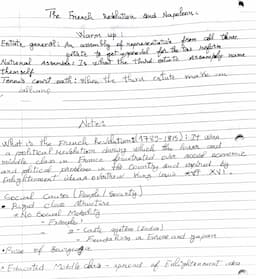 The French Revolution and Napoleon.
Warm up:
Estate general: An assembly of representative from all three
estate to get approval for the tax reform
National Assembly: Is what the third estate assembly name
themself
Tennis court oath: When the third estate made an
Notes
What is the French Revolution? (1789-1815): It was
a political Revolution during which the lower and
middle class in France frustrated over social economic
and political problem in the country and inspired by
Enlightenment ideas overthrew King Louis XVI.
Social Causes (People / Society)
• Rigid class structure
* No Social Mobility
- Example:
a - Caste system (India)
- Feudalism in Europe and Japan
• Rise of Bourgeoisie
• Educated Middle class - spread of Enlightenment idea